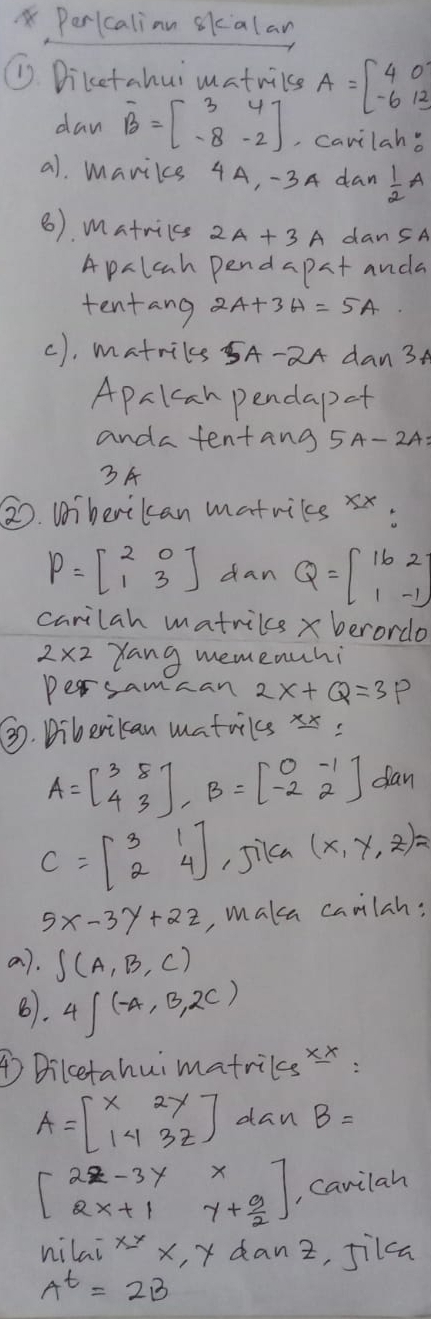 * Perkalian skalar
① Diketahui matriks A = [4 0 -6 12
dan B = [3 4 -8 -2]. carilah:
a). Mariks 4A, -3A dan 1/2 A
b). Matriks 2A + 3A dan 5A
Apakah pendapat anda
tentang 2A+3A = 5A.
c). Matriks 5A-2A dan 3A
Apakah pendapat
anda tentang 5A-2A=
3A
②. Diberikan matriks xx :
P = [2 0 1 3] dan Q = [16 2 1 -1]
carilah matriks x berordo
2x2 yang memenuhi
persamaan 2x+Q=3P
③. Diberikan matriks xx :
A = [3 5 4 3], B = [0 -1 -2 2] dan
C = [3 1 2 4], jika (x, y, z)=
5x-3y+2z, maka carilah:
a). ∫(A, B, C)
b). 4∫(-A, B, 2C)
④ Diketahui matriks xx :
A = [x 2y 14 3z] dan B =
[2z-3y x 2x+1 y+9/2], carilah
nilai xx x, y dan z, jika
Aᵗ = 2B